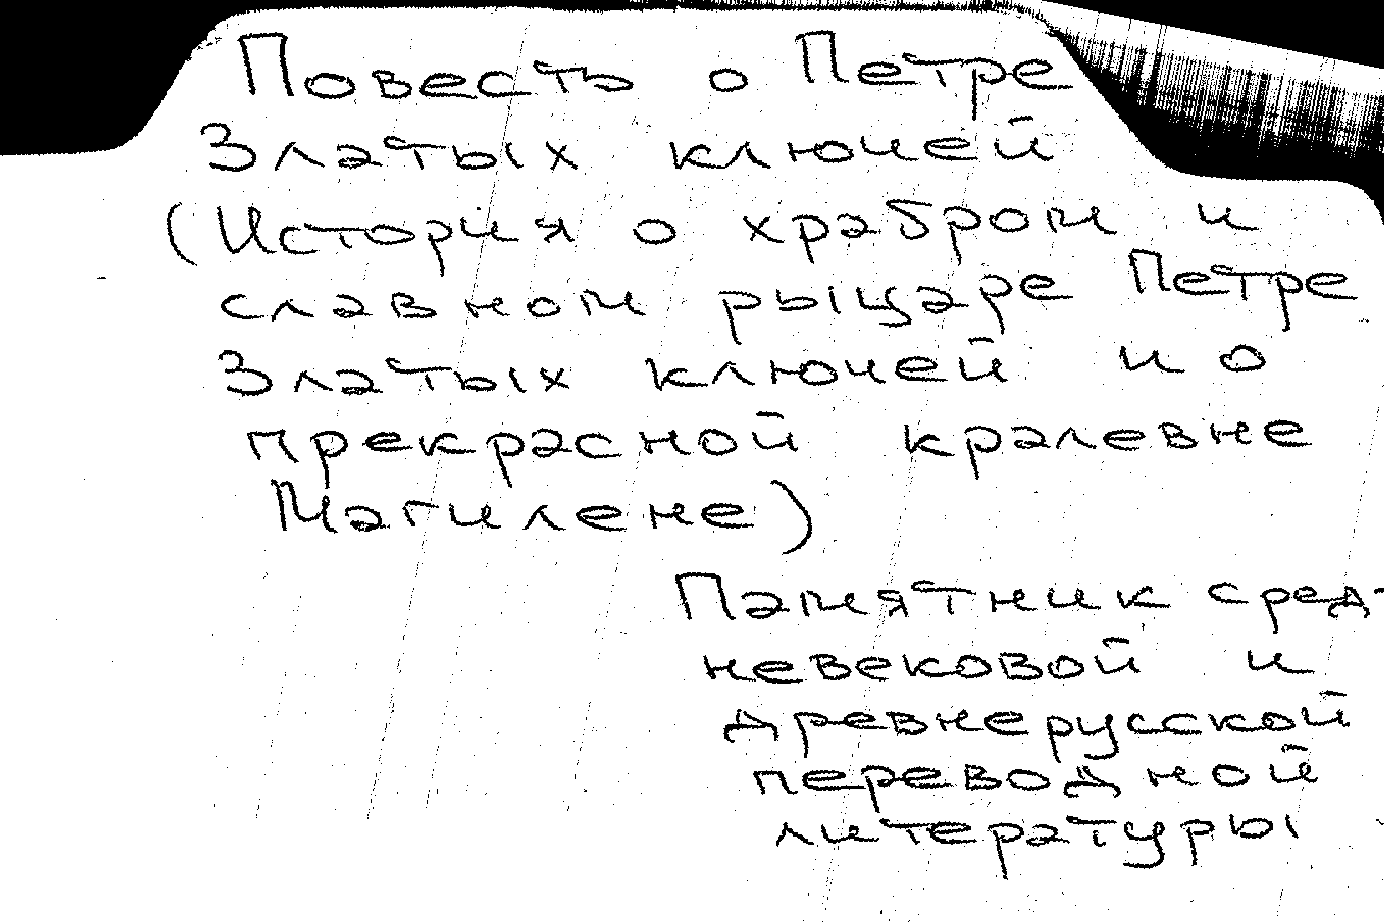 Повесть о Петре
Златых ключей
(История о храбром и
славном рыцаре Петре
Златых ключей и о
прекрасной кралевне
Магилене)
Памятник сред-
невековой и
древнерусской
переводной
литературы